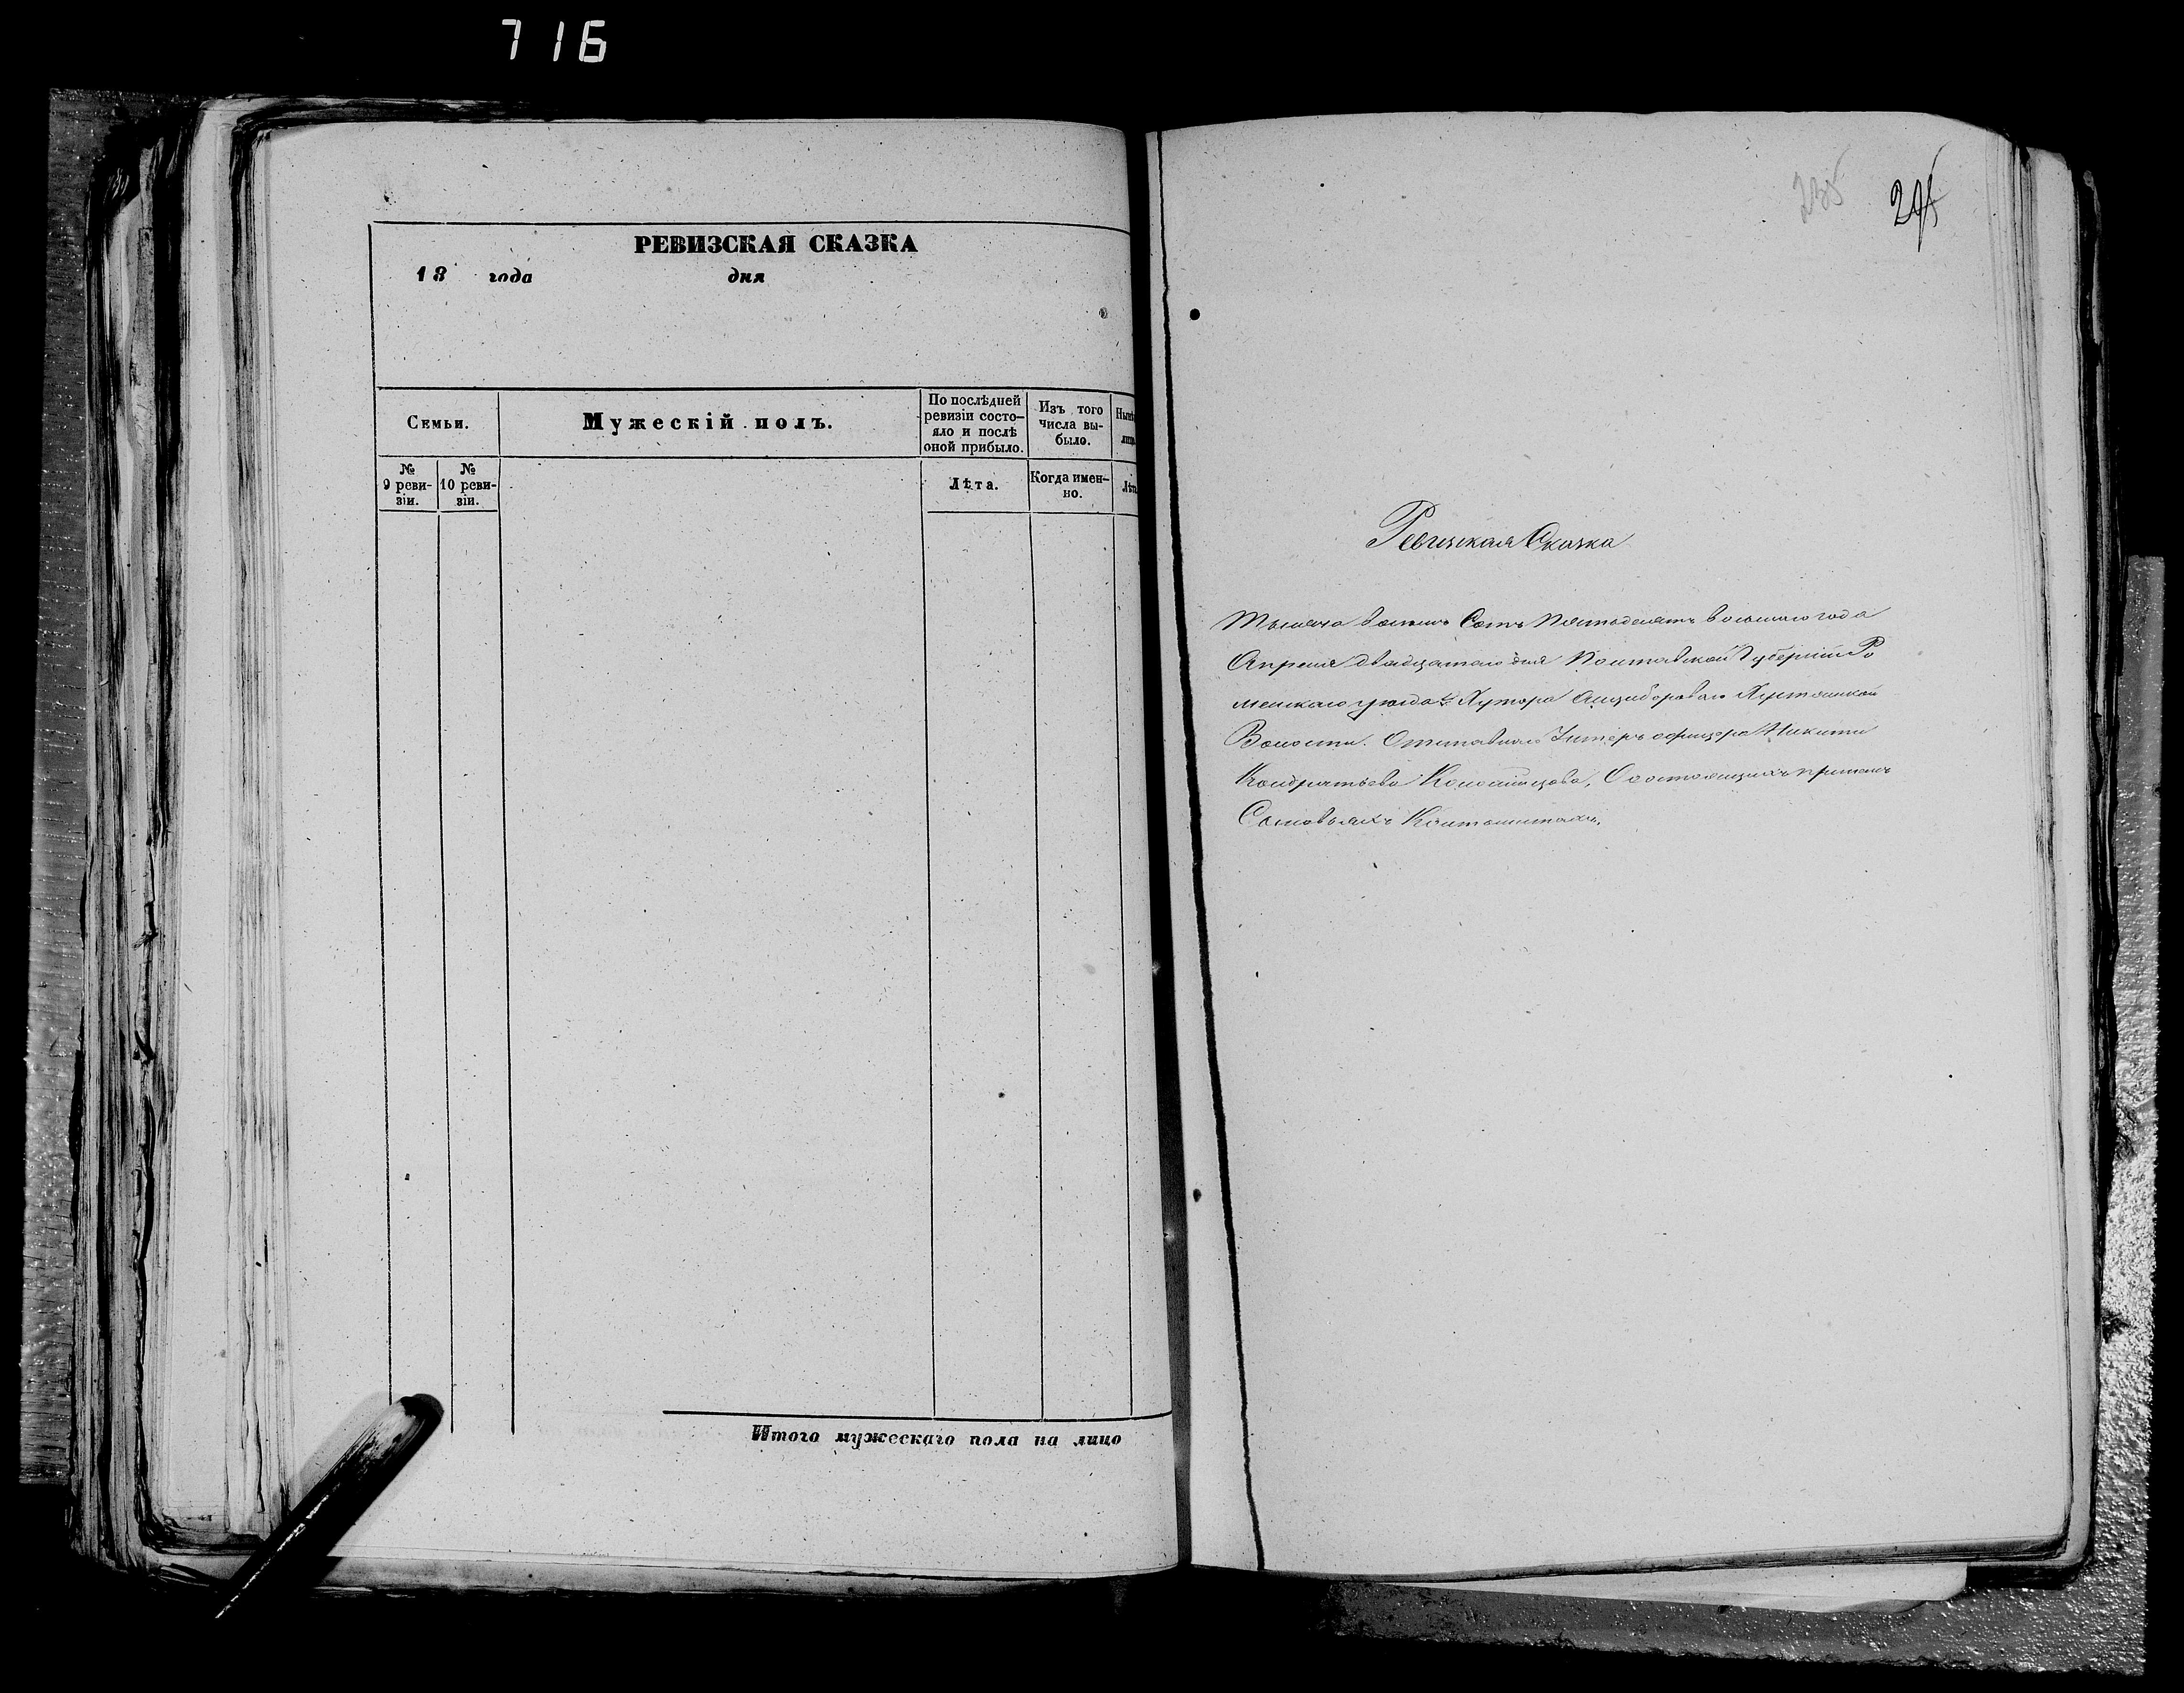 716
РЕВИЗСКАЯ СКАЗКА
18 года дня
Семьи.
Мужескій полъ.
По послѣдней ревизіи состо-
яло и послѣ оной прибыло.
Изъ того числа вы-
было.
№ 9 реви-
зіи.
№ 10 реви-
зіи.
Лѣта.
Когда имен-
но.
Итого мужескаго пола на лицо
235
Ревизская Сказка
Тысяча восемь Сотъ Пятьдесятъ восьмаго года
Апреля двадцатаго дня Полтавской Губерніи Ро
менскаго уезда Хутора
Волости. Отставнаго Унтеръ офицера Никиты
Кондратьева Коломійцова, Состоящихъ при немъ
Сыновьяхъ Кантонистахъ,